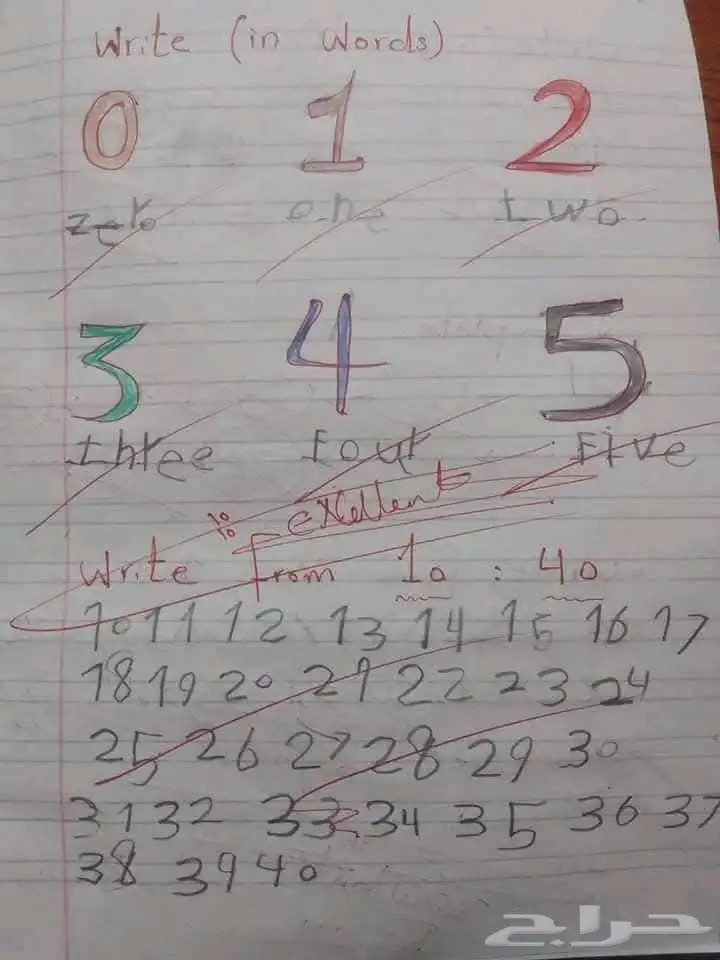 Write (in words)
0 1 2
zero one two
3 4 5
three four five
10/10 exellent
Write from 10 : 40
10 11 12 13 14 15 16 17
18 19 20 21 22 23 24
25 26 27 28 29 30
31 32 33 34 35 36 37
38 39 40
حراج